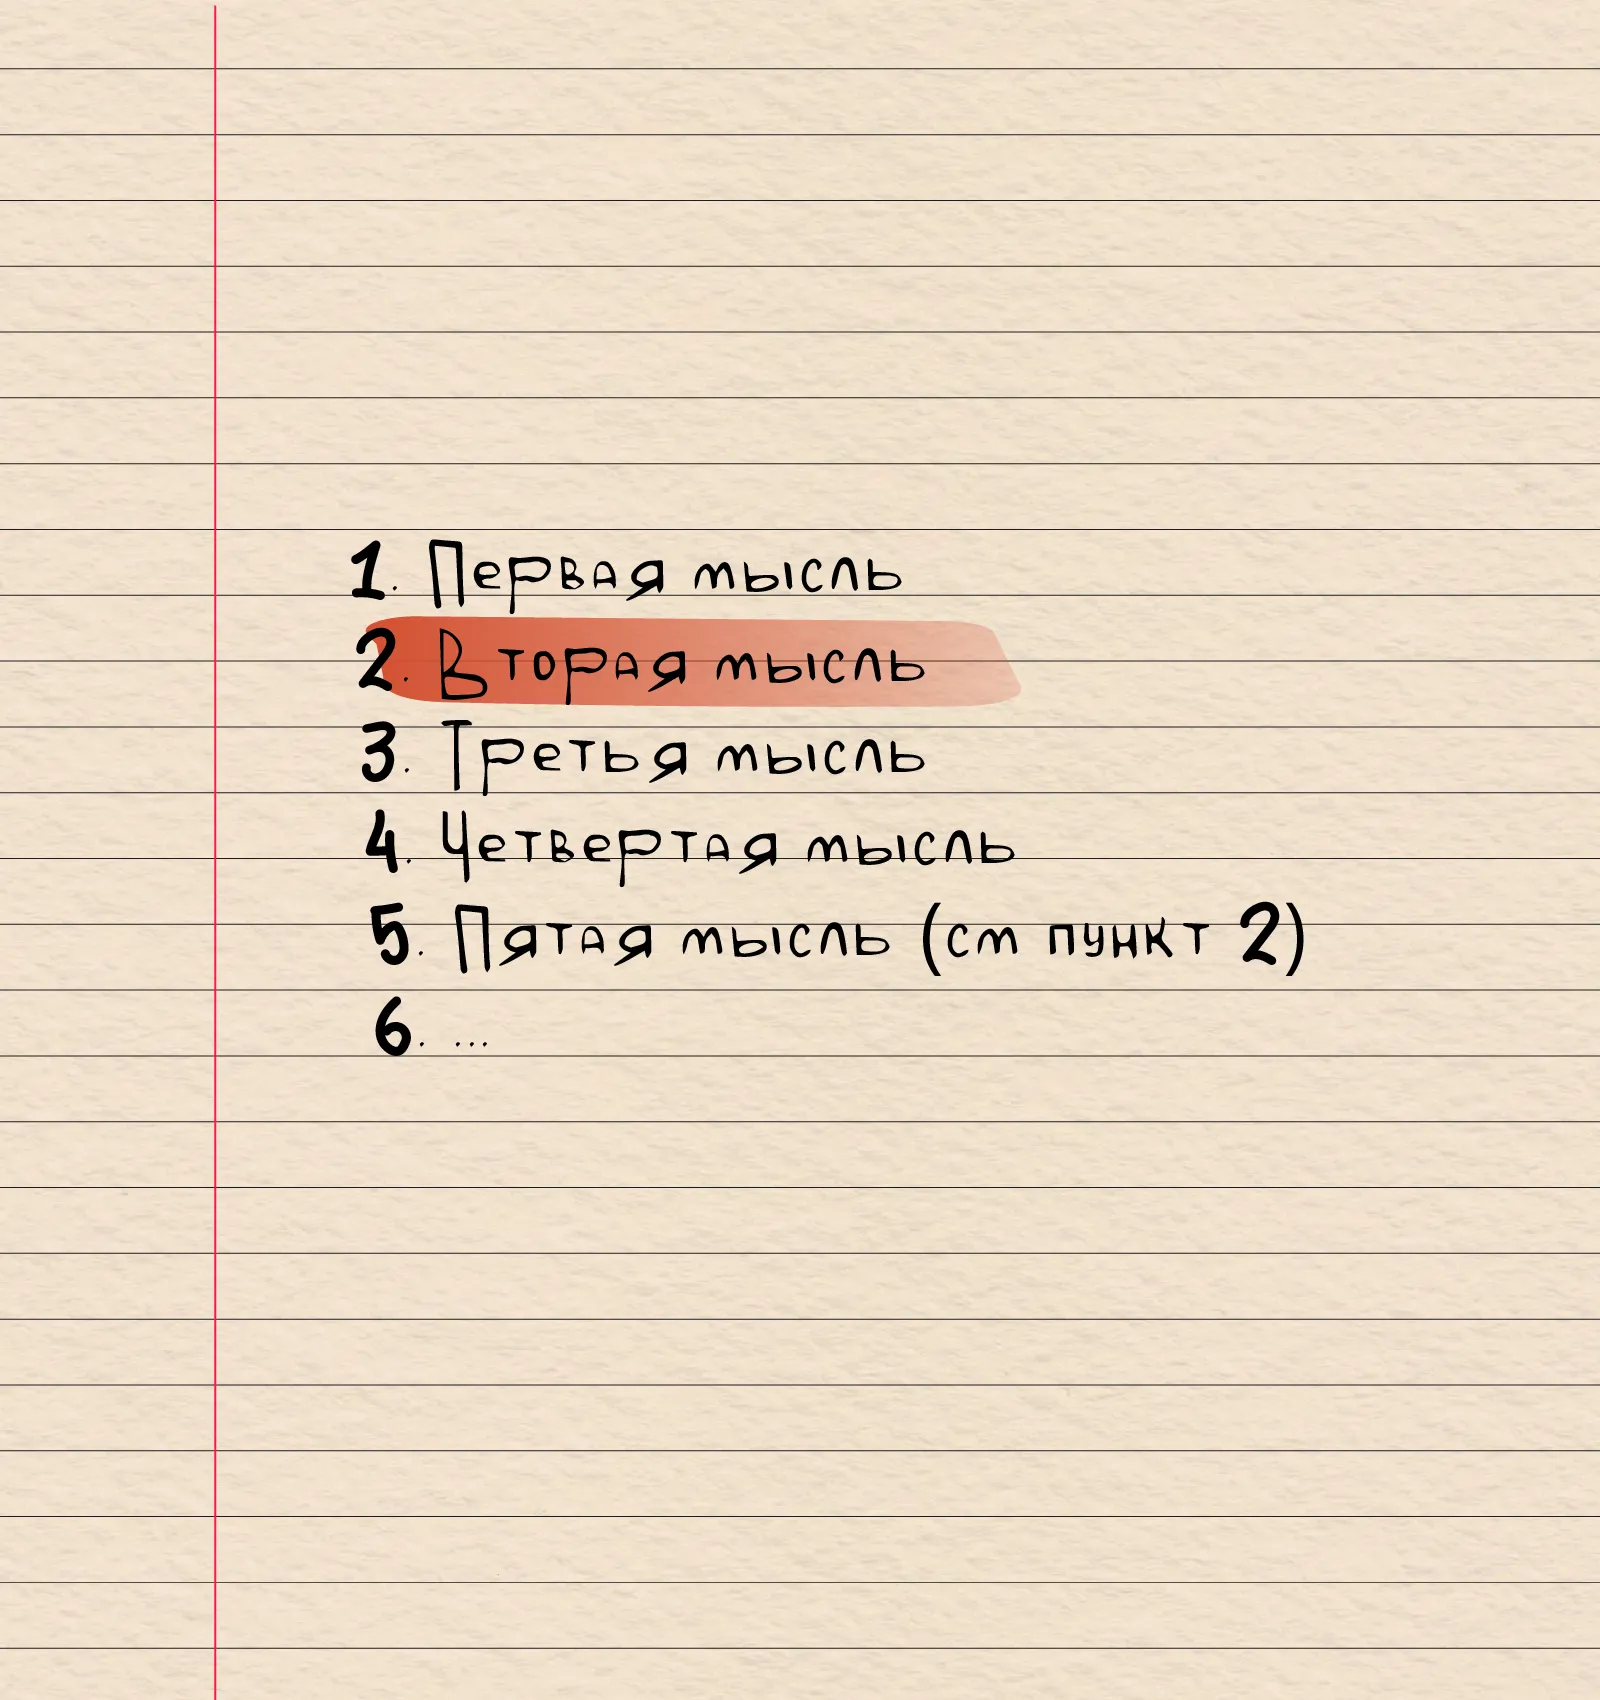 1. Первая мысль
2. Вторая мысль
3. Третья мысль
4. Четвертая мысль
5. Пятая мысль (см пункт 2)
6. ...